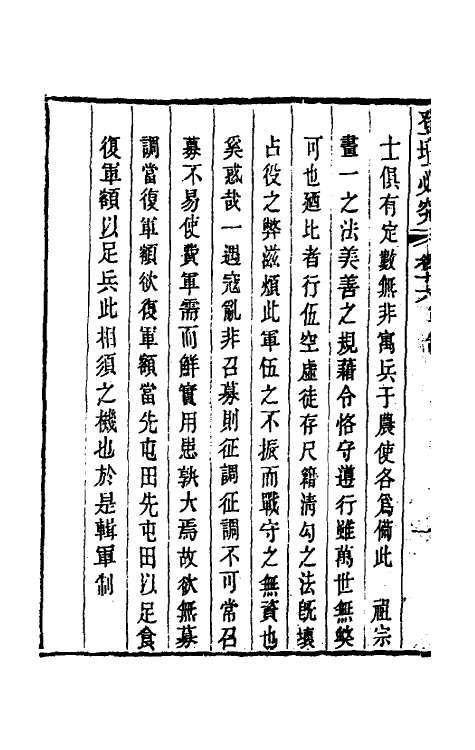 登壇必究 卷十六
士俱有定數無非寓兵于農使各爲備此 祖宗
畫一之法美善之規藉令恪守遵行雖萬世無獘
可也廼比者行伍空虛徒存尺籍清勾之法旣壞
占役之弊滋煩此軍伍之不振而戰守之無資也
奚惑哉一遇寇亂非召募則征調征調不可常召
募不易使費軍需而鮮實用患孰大焉故欲無募
調當復軍額欲復軍額當先屯田先屯田以足食
復軍額以足兵此相須之機也於是輯軍制